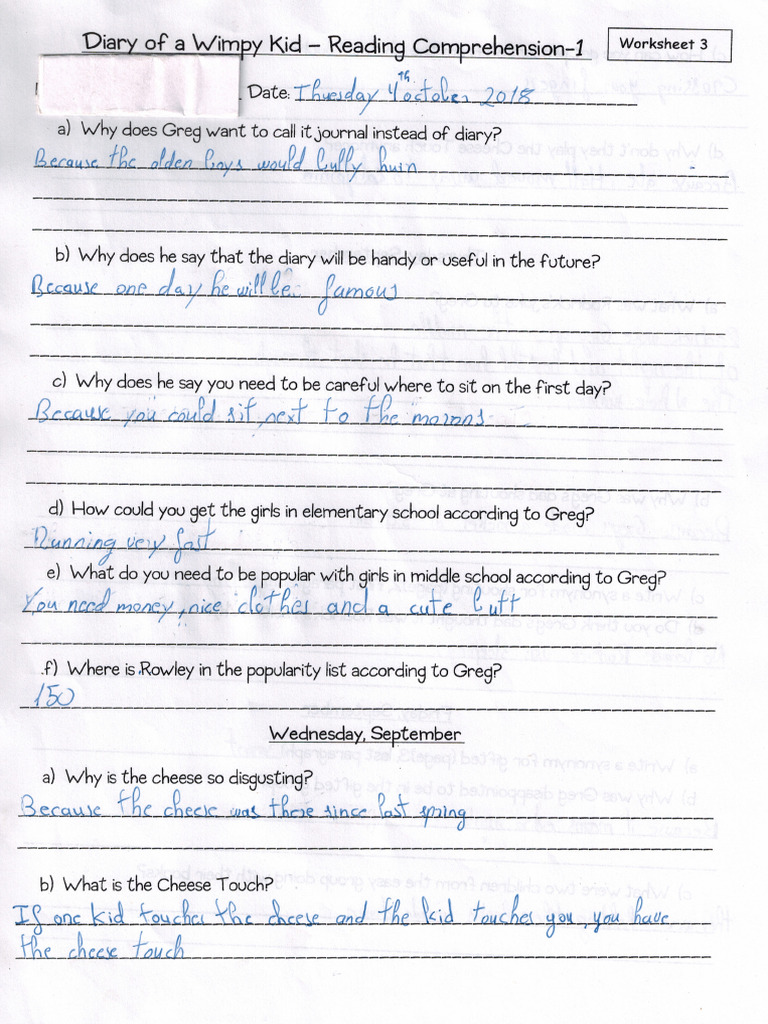 Diary of a Wimpy Kid – Reading Comprehension-1
Worksheet 3
Date: Thuesday 4th october 2018
a) Why does Greg want to call it journal instead of diary?
Because the olden boys would bully him
b) Why does he say that the diary will be handy or useful in the future?
Because one day he will be famous
c) Why does he say you need to be careful where to sit on the first day?
Because you could sit next to the morons
d) How could you get the girls in elementary school according to Greg?
Running very fast
e) What do you need to be popular with girls in middle school according to Greg?
You need money, nice clothes and a cute butt
f) Where is Rowley in the popularity list according to Greg?
150
Wednesday, September
a) Why is the cheese so disgusting?
Because the cheese was there since last spring
b) What is the Cheese Touch?
If one kid touches the cheese and the kid touches you, you have
the cheese touch